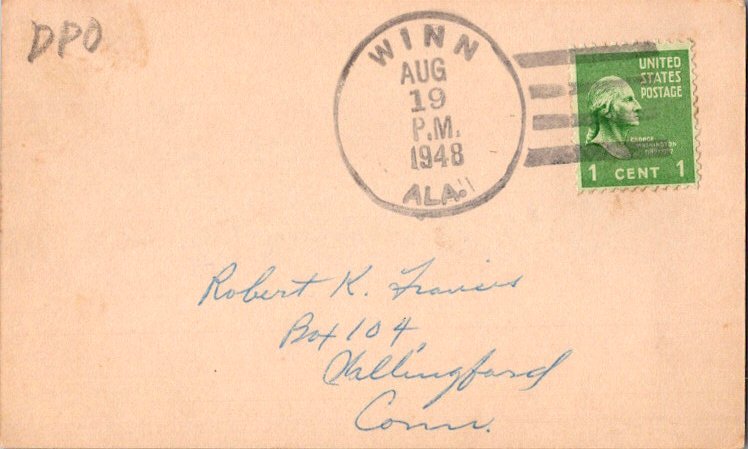 DPO
WINN
AUG
19
P.M.
1948
ALA.
UNITED
STATES
POSTAGE
GEORGE
WASHINGTON
1 CENT 1
Robert K. Francis
Box 104,
Wallingford
Conn.